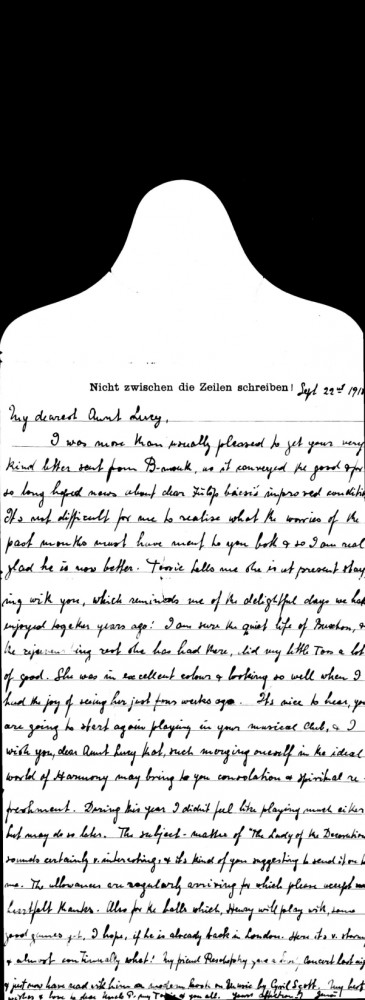 Nicht zwischen die Zeilen schreiben! Sept 22nd 191
My dearest Aunt Lucy,
I was more than usually pleased to get your very
kind letter sent from B-mouth, as it conveyed the good & for
so long hoped news about dear Fülöp bácsi's improved conditio
It's not difficult for me to realise what the worries of the
past months must have meant to you both & so I am real
glad he is now better. Tossie tells me she is at present stay
ing with you, which reminds me of the delightful days we had
enjoyed together years ago! I am sure the quiet life of Buxton, &
the ing rest she has had there, did my little Toss a lot
of good. She was in excellent colours & looking so well when I
had the joy of seeing her just four weeks ago. It's nice to hear, you
are going to start again playing in your musical Club, & I
wish you, dear Aunt Lucy that, such merging oneself in the ideal
world of Harmony may bring to you consolation & spiritual re-
freshment. During this year I didn't feel like playing much either
but may do so later. The subject-matter of "The Lady of the Decoration
sounds certainly v. interesting, & it's kind of you suggesting to send it on t
me. The allowances are regularly arriving for which please accept m
heartfelt thanks. Also for the balls which, Henry will play with, some
good games yet, I hope, if he is already back in London. Here it's v. stormy
& almost continually what! My friend gave a Concert last nig
& just now have read with him a modern book on Music by Cyril Scott. My best
wishes & love to dear Uncle P. my Tossie & you all. Yours